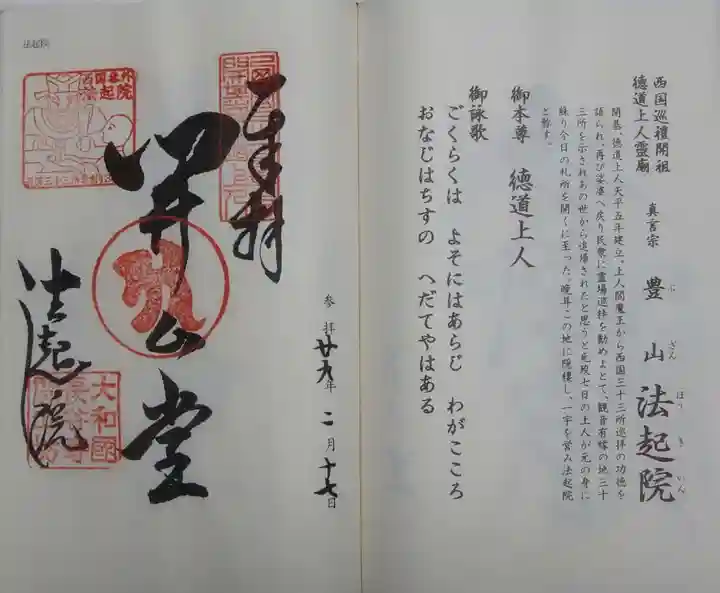 西国巡禮開祖
徳道上人霊廟
真言宗 豊山 法起院
ぶ ざん ほう き いん
開基、徳道上人天平五年建立、上人閻魔王から西国三十三所巡拝の功徳を
語られ、再び娑婆へ戻り民衆に霊場巡拝を勧めよとて、観音有縁の地三十
三所を示されあの世から追帰されたと思うと死後七日の上人が元の身に
蘇り今日の札所を開くに至った。晩年この地に隠棲し、一宇を営み法起院
と称す。
御本尊 徳道上人
御詠歌
ごくらくは よそにはあらじ わがこころ
おなじはちすの へだてやはある
法起院
奉拝
開山堂
法起院
参拝 廿九年 二月十七日
西国番外
法起院
大和国